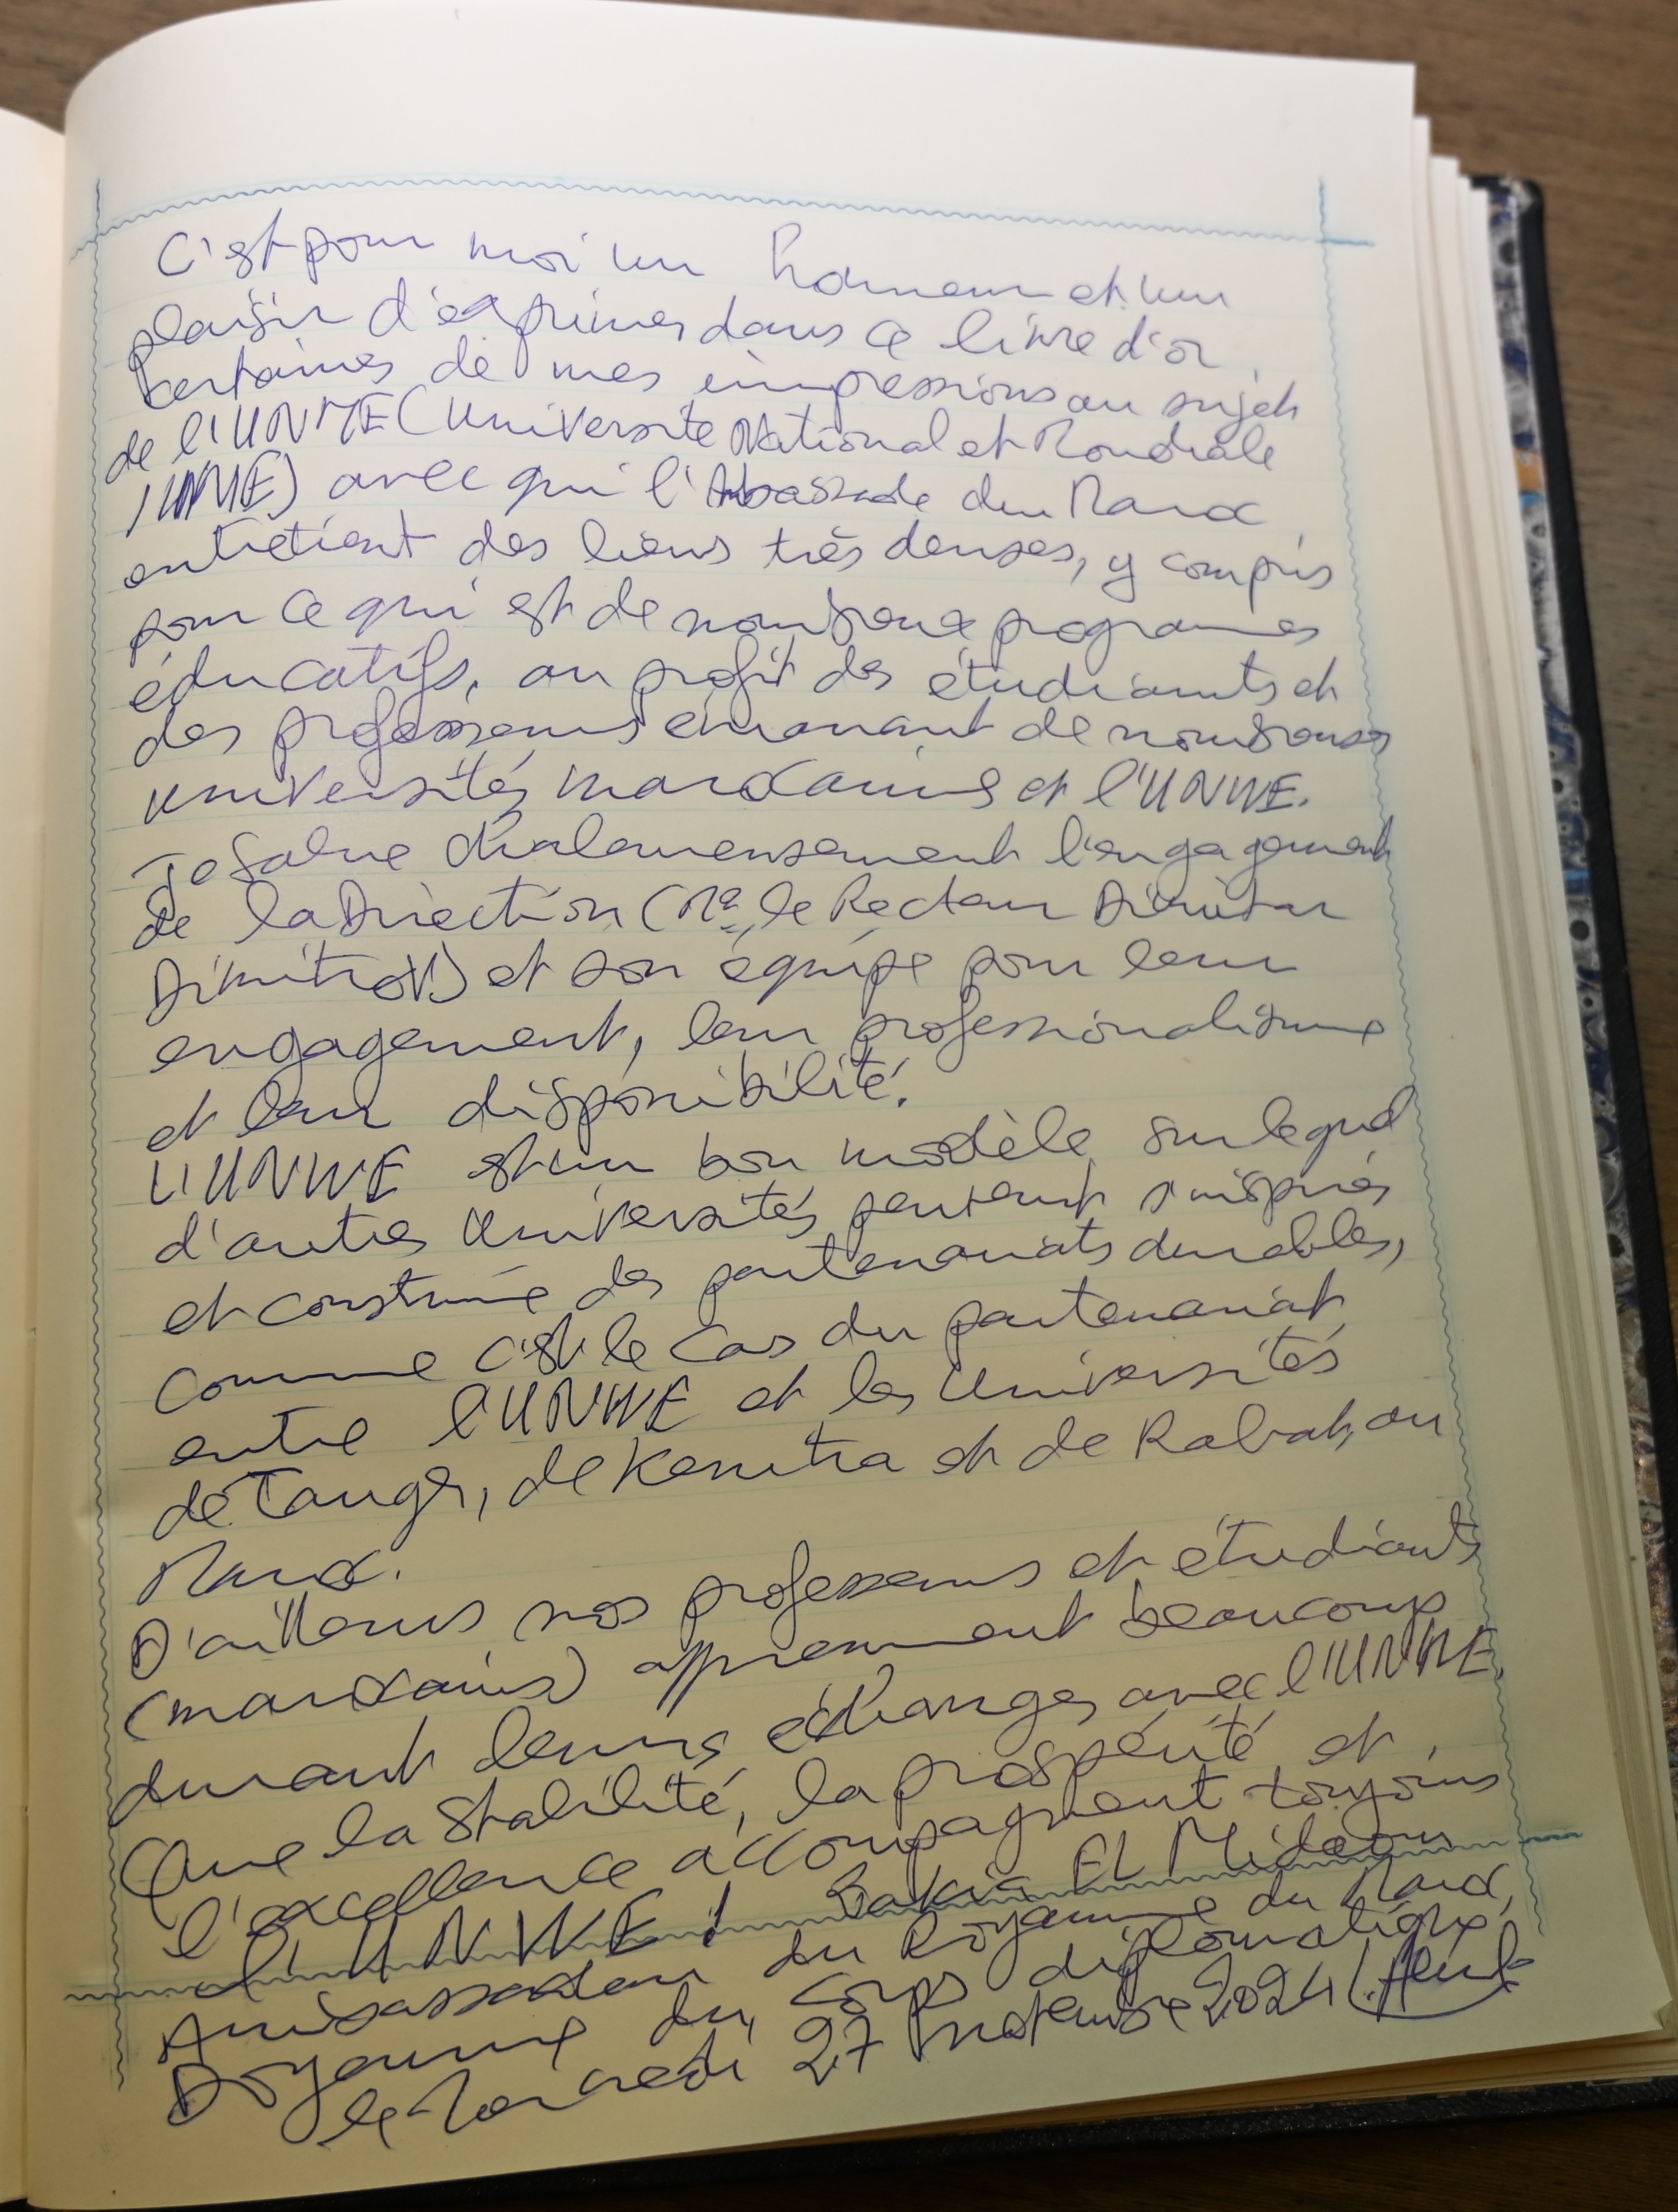 C'est pour moi un honneur et un
plaisir d'exprimer dans ce livre d'or
certaines de mes impressions au sujet
de l'UNWE (Université National et Mondiale
UNWE) avec qui l'Ambassade du Maroc
entretient des liens très denses, y compris
pour ce qui est de nombreux programmes
éducatifs, au profit des étudiants et
des professeurs émanant de nombreuses
universités marocaines et l'UNWE.
Je salue chaleureusement l'engagement
de la Direction (Mr le Recteur Dimitar
Dimitrov) et son équipe pour leur
engagement, leur professionalisme
et leur disponibilité.
L'UNWE est un bon modèle sur lequel
d'autres Universités peuvent s'inspirer
et construire des partenariats durables,
comme c'est le cas du partenariat
entre l'UNWE et les Universités
de Tanger, de Kenitra et de Rabat, au
Maroc.
D'ailleurs nos professeurs et étudiants
(marocains) apprennent beaucoup
durant leurs échanges avec l'UNWE.
Que la stabilité, la prospérité et
l'excellence accompagnent toujours
l'UNWE! Zakia EL Midaoui
Ambassadeur du Royaume du Maroc,
Doyenne du corps diplomatique,
le Mercredi 27 Novembre 2024